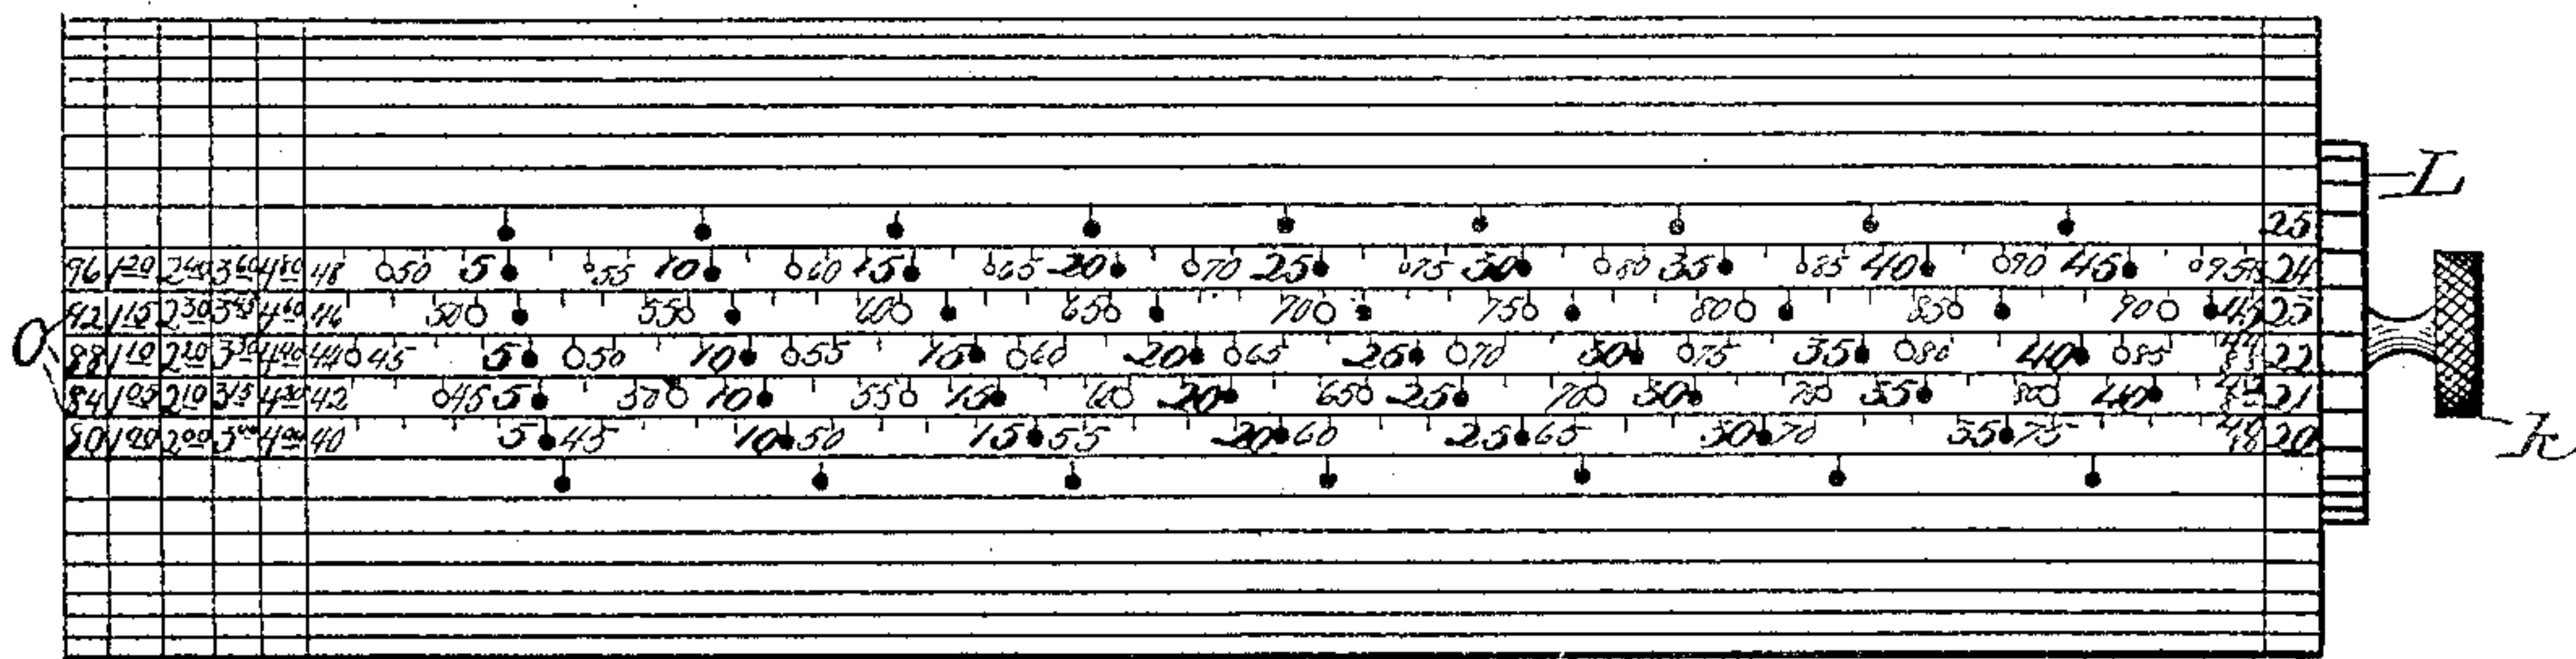 L
25
96 1 20 2 40 3 60 4 80 48 50 5 55 10 60 15 65 20 70 25 75 30 80 35 85 40 90 45 95 24
92 1 15 2 30 3 45 4 60 46 50 55 60 65 70 75 80 85 90 45 23
O
88 1 10 2 20 3 30 4 40 44 45 5 50 10 55 15 60 20 65 25 70 30 75 35 80 40 85 22
84 1 05 2 10 3 15 4 20 42 45 5 50 10 55 15 60 20 65 25 70 30 75 35 80 40 21
80 1 00 2 00 3 00 4 00 40 5 45 10 50 15 55 20 60 25 65 30 70 35 75 20
k